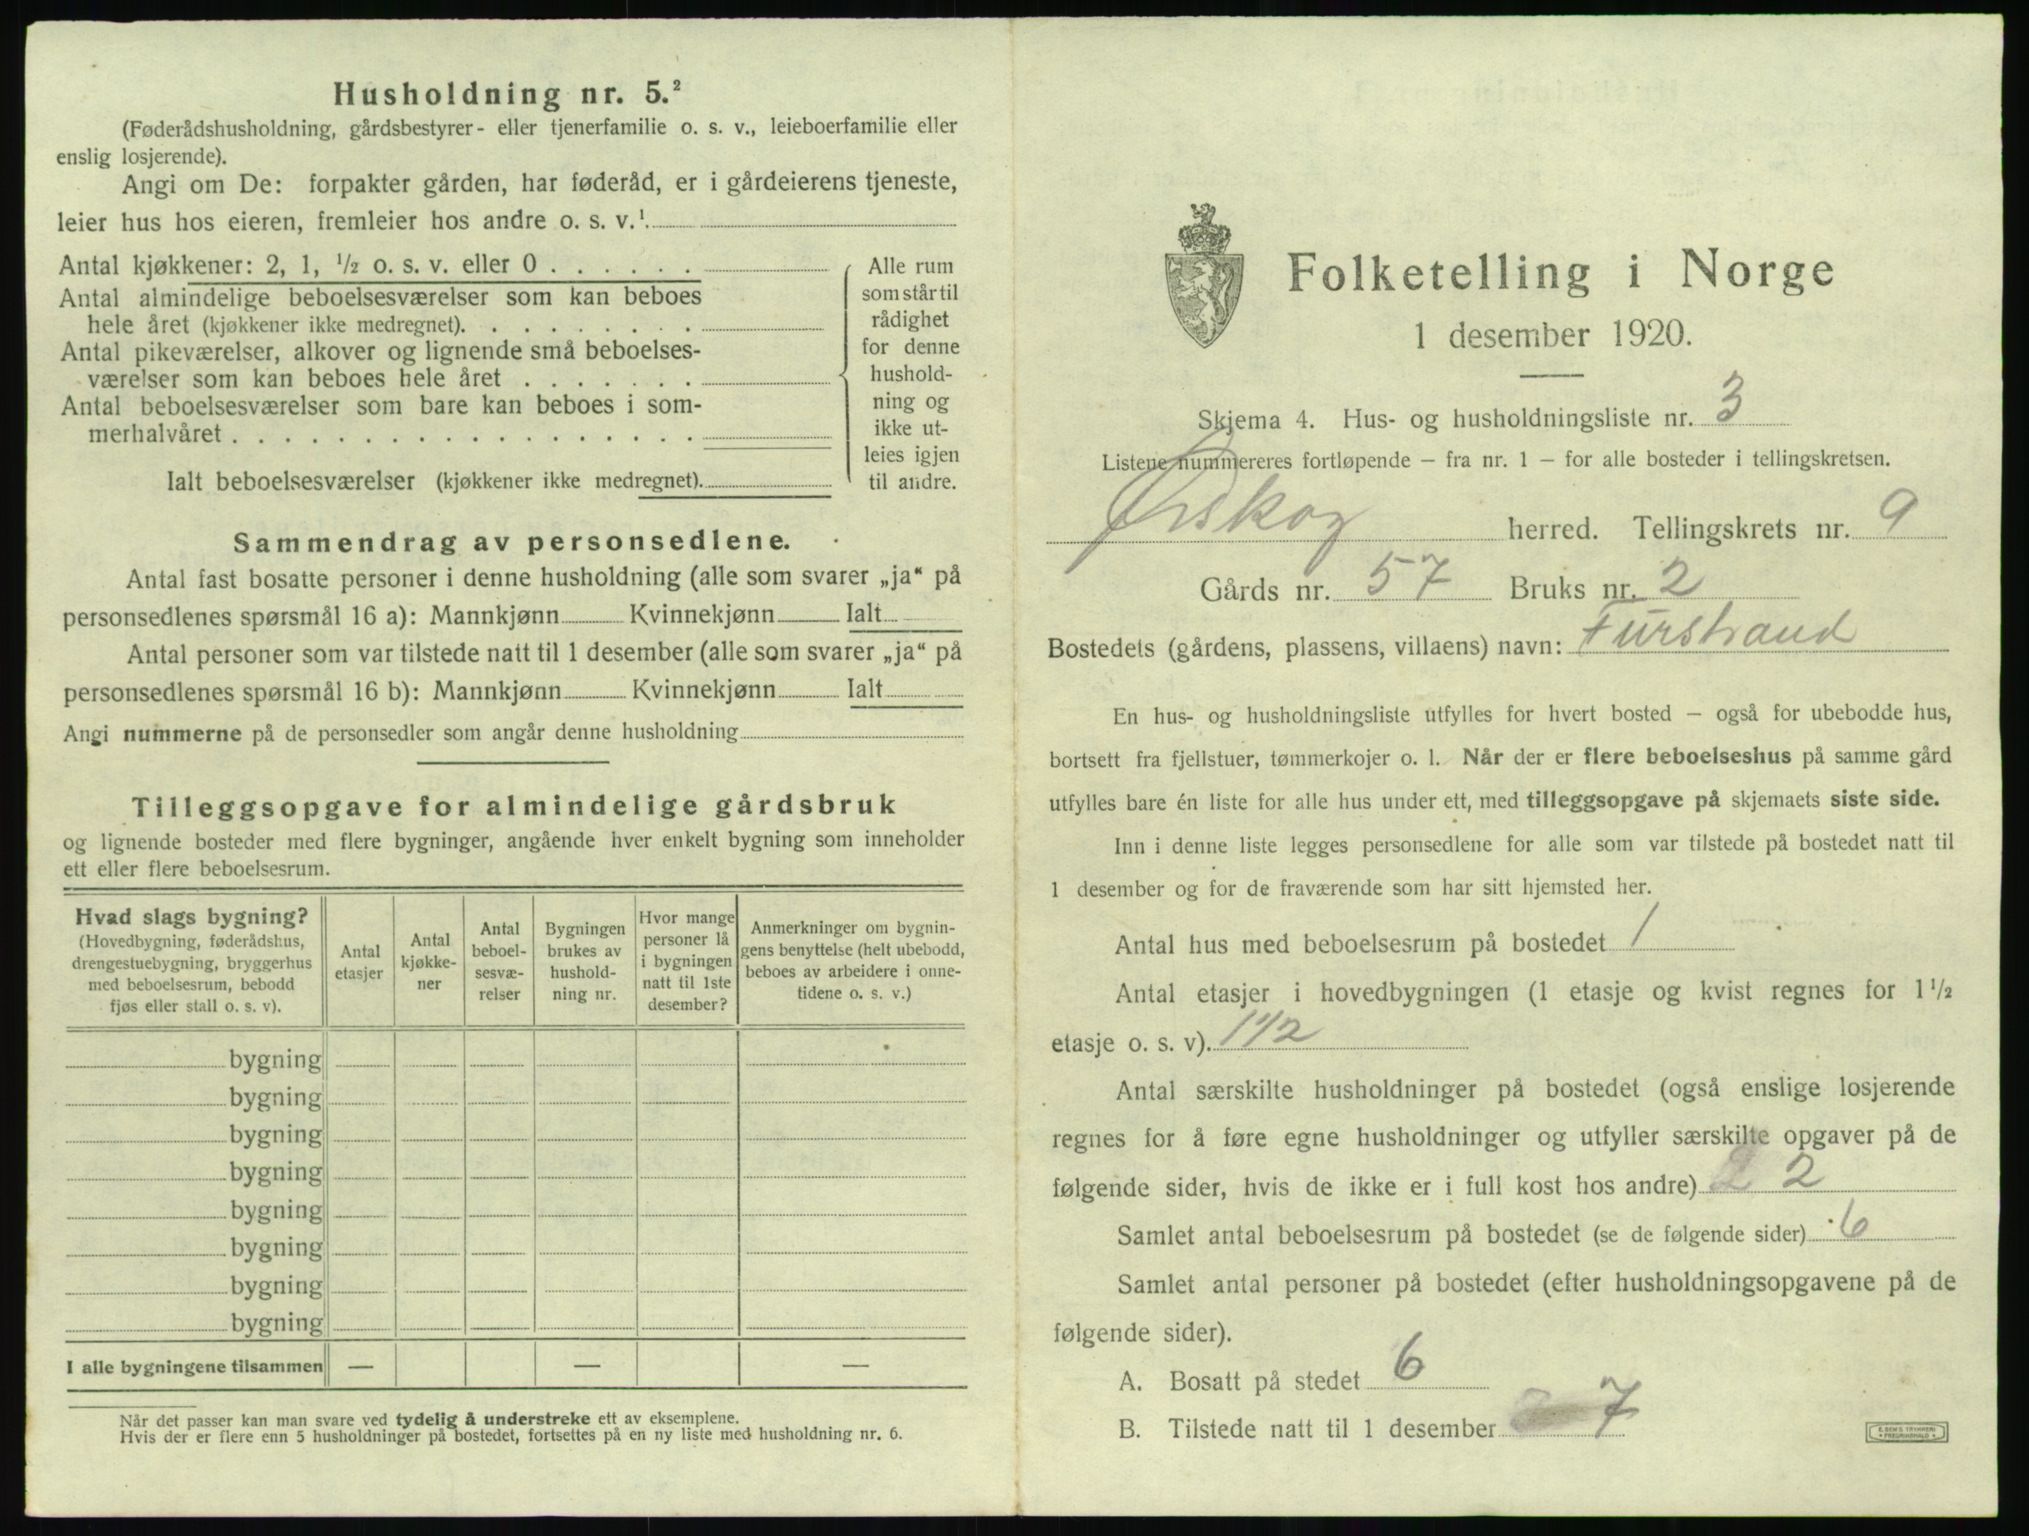 Husholdning nr. 5.²
(Føderådshusholdning, gårdsbestyrer- eller tjenerfamilie o. s. v., leieboerfamilie eller
enslig losjerende).
Angi om De: forpakter gården, har føderåd, er i gårdeierens tjeneste,
leier hus hos eieren, fremleier hos andre o. s. v.¹
Antal kjøkkener: 2, 1, ½ o. s. v. eller 0 . . . . . .
Antal almindelige beboelsesværelser som kan beboes
hele året (kjøkkener ikke medregnet). . . . . . . . .
Antal pikeværelser, alkover og lignende små beboelses-
værelser som kan beboes hele året . . . . . . .
Antal beboelsesværelser som bare kan beboes i som-
merhalvåret . . . . . . . . . . . . . . . . . .
Ialt beboelsesværelser (kjøkkener ikke medregnet).
Alle rum
som står til
rådighet
for denne
hushold-
ning og
ikke ut-
leies igjen
til andre.
Sammendrag av personsedlene.
Antal fast bosatte personer i denne husholdning (alle som svarer „ja“ på
personsedlenes spørsmål 16 a): Mannkjønn Kvinnekjønn Ialt
Antal personer som var tilstede natt til 1 desember (alle som svarer „ja“ på
personsedlenes spørsmål 16 b): Mannkjønn Kvinnekjønn Ialt
Angi nummerne på de personsedler som angår denne husholdning
Tilleggsopgave for almindelige gårdsbruk
og lignende bosteder med flere bygninger, angående hver enkelt bygning som inneholder
ett eller flere beboelsesrum.
Hvad slags bygning?
(Hovedbygning, føderådshus,
drengestuebygning, bryggerhus
med beboelsesrum, bebodd
fjøs eller stall o. s. v).
Antal
etasjer
Antal
kjøkke-
ner
Antal
beboel-
sesvæ-
relser
Bygningen
brukes av
hushold-
ning nr.
Hvor mange
personer lå
i bygningen
natt til 1ste
desember?
Anmerkninger om bygnin-
gens benyttelse (helt ubebodd,
beboes av arbeidere i onne-
tidene o. s. v.)
bygning
bygning
bygning
bygning
bygning
bygning
bygning
bygning
I alle bygningene tilsammen — — —
Når det passer kan man svare ved tydelig å understreke ett av eksemplene.
Hvis der er flere enn 5 husholdninger på bostedet, fortsettes på en ny liste med husholdning nr. 6.
Folketelling i Norge
1 desember 1920.
Skjema 4. Hus- og husholdningsliste nr. 3
Listene nummereres fortløpende – fra nr. 1 – for alle bosteder i tellingskretsen.
Ørskog herred. Tellingskrets nr. 9
Gårds nr. 57 Bruks nr. 2
Bostedets (gårdens, plassens, villaens) navn: Furstrand
En hus- og husholdningsliste utfylles for hvert bosted – også for ubebodde hus,
bortsett fra fjellstuer, tømmerkojer o. l. Når der er flere beboelseshus på samme gård
utfylles bare én liste for alle hus under ett, med tilleggsopgave på skjemaets siste side.
Inn i denne liste legges personsedlene for alle som var tilstede på bostedet natt til
1 desember og for de fraværende som har sitt hjemsted her.
Antal hus med beboelsesrum på bostedet 1
Antal etasjer i hovedbygningen (1 etasje og kvist regnes for 1 ½
etasje o. s. v). 1 1/2
Antal særskilte husholdninger på bostedet (også enslige losjerende
regnes for å føre egne husholdninger og utfyller særskilte opgaver på de
følgende sider, hvis de ikke er i full kost hos andre) 2
Samlet antal beboelsesrum på bostedet (se de følgende sider) 6
Samlet antal personer på bostedet (efter husholdningsopgavene på de
følgende sider).
A. Bosatt på stedet 6
B. Tilstede natt til 1 desember 7
E. SEM'S TRYKKERI
FREDRIKSHALD